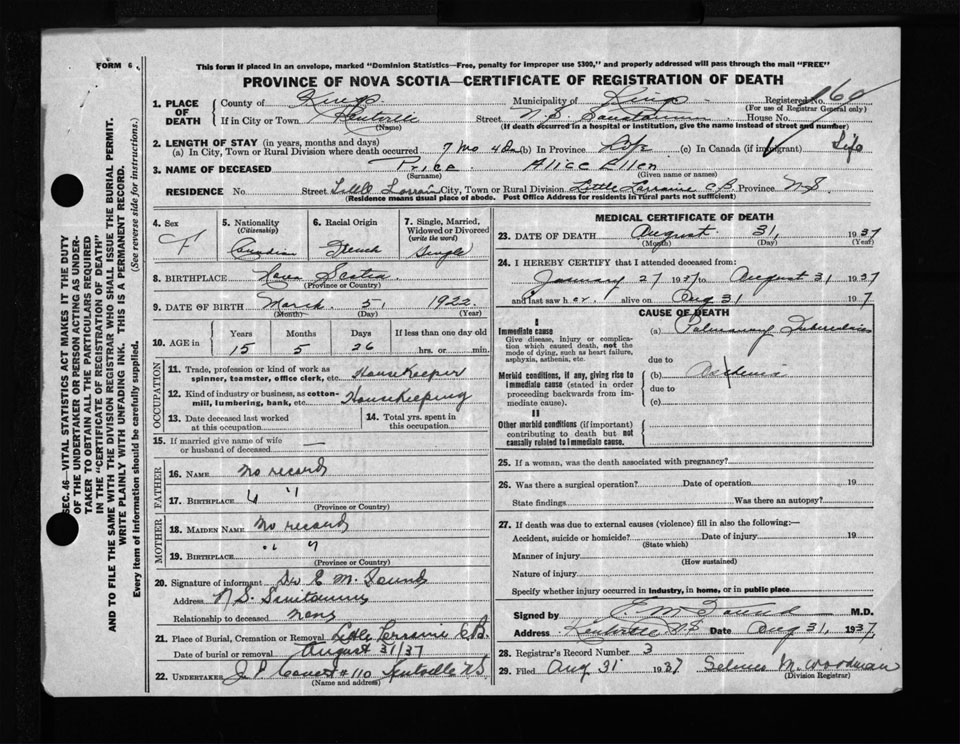 FORM 6
This form if placed in an envelope, marked "Dominion Statistics—Free, penalty for improper use $300," and properly addressed will pass through the mail "FREE"
PROVINCE OF NOVA SCOTIA—CERTIFICATE OF REGISTRATION OF DEATH
1. PLACE OF DEATH County of Kings Municipality of Kings Registered No. 160
(For use of Registrar General only)
If in City or Town Kentville Street N.S. Sanatorium House No.
(Name) (If death occurred in a hospital or institution, give the name instead of street and number)
2. LENGTH OF STAY (in years, months and days)
(a) In City, Town or Rural Division where death occurred 7 Mo 4 Da (b) In Province Life (c) In Canada (if immigrant) Life
3. NAME OF DECEASED Price Alice Ellen
(Surname) (Given name or names)
RESIDENCE No. Street Little Lorrain City, Town or Rural Division Little Lorraine C.B. Province N.S.
(Residence means usual place of abode. Post Office Address for residents in rural parts not sufficient)
4. Sex F
5. Nationality (Citizenship) Canadian
6. Racial Origin French
7. Single, Married, Widowed or Divorced (write the word) Single
8. BIRTHPLACE Nova Scotia
(Province or Country)
9. DATE OF BIRTH March 5 1922
(Month) (Day) (Year)
10. AGE in Years Months Days If less than one day old
15 5 26 hrs. or min.
OCCUPATION
11. Trade, profession or kind of work as spinner, teamster, office clerk, etc. Housekeeper
12. Kind of industry or business, as cotton-mill, lumbering, bank, etc. Housekeeping
13. Date deceased last worked at this occupation
14. Total yrs. spent in this occupation
15. If married give name of wife or husband of deceased —
FATHER
16. NAME No record
17. BIRTHPLACE " "
(Province or Country)
MOTHER
18. MAIDEN NAME No record
19. BIRTHPLACE " "
(Province or Country)
20. Signature of informant Dr E. M.
Address N.S.
Relationship to deceased none
21. Place of Burial, Cremation or Removal Little Lorraine C.B.
Date of burial or removal August 31/37
22. UNDERTAKER J. P. #110 Kentville N.S.
(Name and address)
MEDICAL CERTIFICATE OF DEATH
23. DATE OF DEATH August 31 1937
(Month) (Day) (Year)
24. I HEREBY CERTIFY that I attended deceased from:
January 27 1937 to August 31 1937
and last saw her alive on Aug 31 1937
CAUSE OF DEATH
I
Immediate cause (a) Pulmonary Tuberculosis
Give disease, injury or complication which caused death, not the mode of dying, such as heart failure, asphyxia, asthenia, etc.
due to
Morbid conditions, if any, giving rise to immediate cause (stated in order proceeding backwards from immediate cause).
(b)
due to
(c)
II
Other morbid conditions (if important) contributing to death but not causally related to immediate cause.
25. If a woman, was the death associated with pregnancy?
26. Was there a surgical operation? Date of operation 19
State findings Was there an autopsy?
27. If death was due to external causes (violence) fill in also the following:—
Accident, suicide or homicide? Date of injury 19
(State which)
Manner of injury
(How sustained)
Nature of injury
Specify whether injury occurred in Industry, in home, or in public place
Signed by E. M. M.D.
Address Kentville N.S Date Aug 31, 1937
28. Registrar's Record Number 3
29. Filed Aug 31 1937 M. Woodman
(Division Registrar)
SEC. 46—VITAL STATISTICS ACT MAKES IT THE DUTY
OF THE UNDERTAKER OR PERSON ACTING AS UNDERTAKER TO OBTAIN ALL THE PARTICULARS REQUIRED
IN THE "CERTIFICATE OF REGISTRATION OF DEATH"
AND TO FILE THE SAME WITH THE DIVISION REGISTRAR WHO SHALL ISSUE THE BURIAL PERMIT.
WRITE PLAINLY WITH UNFADING INK. THIS IS A PERMANENT RECORD.
Every item of Information should be carefully supplied. (See reverse side for instructions.)